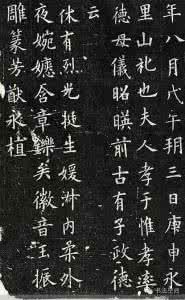 年八月戊午朔三日庚申永
里山礼也夫人孝于惟孝率
德母儀昭暎前古有子政德
云
休有烈光挺生媛淑内柔外
夜婉含章矣徽音玉振
雕篆芳猷永植